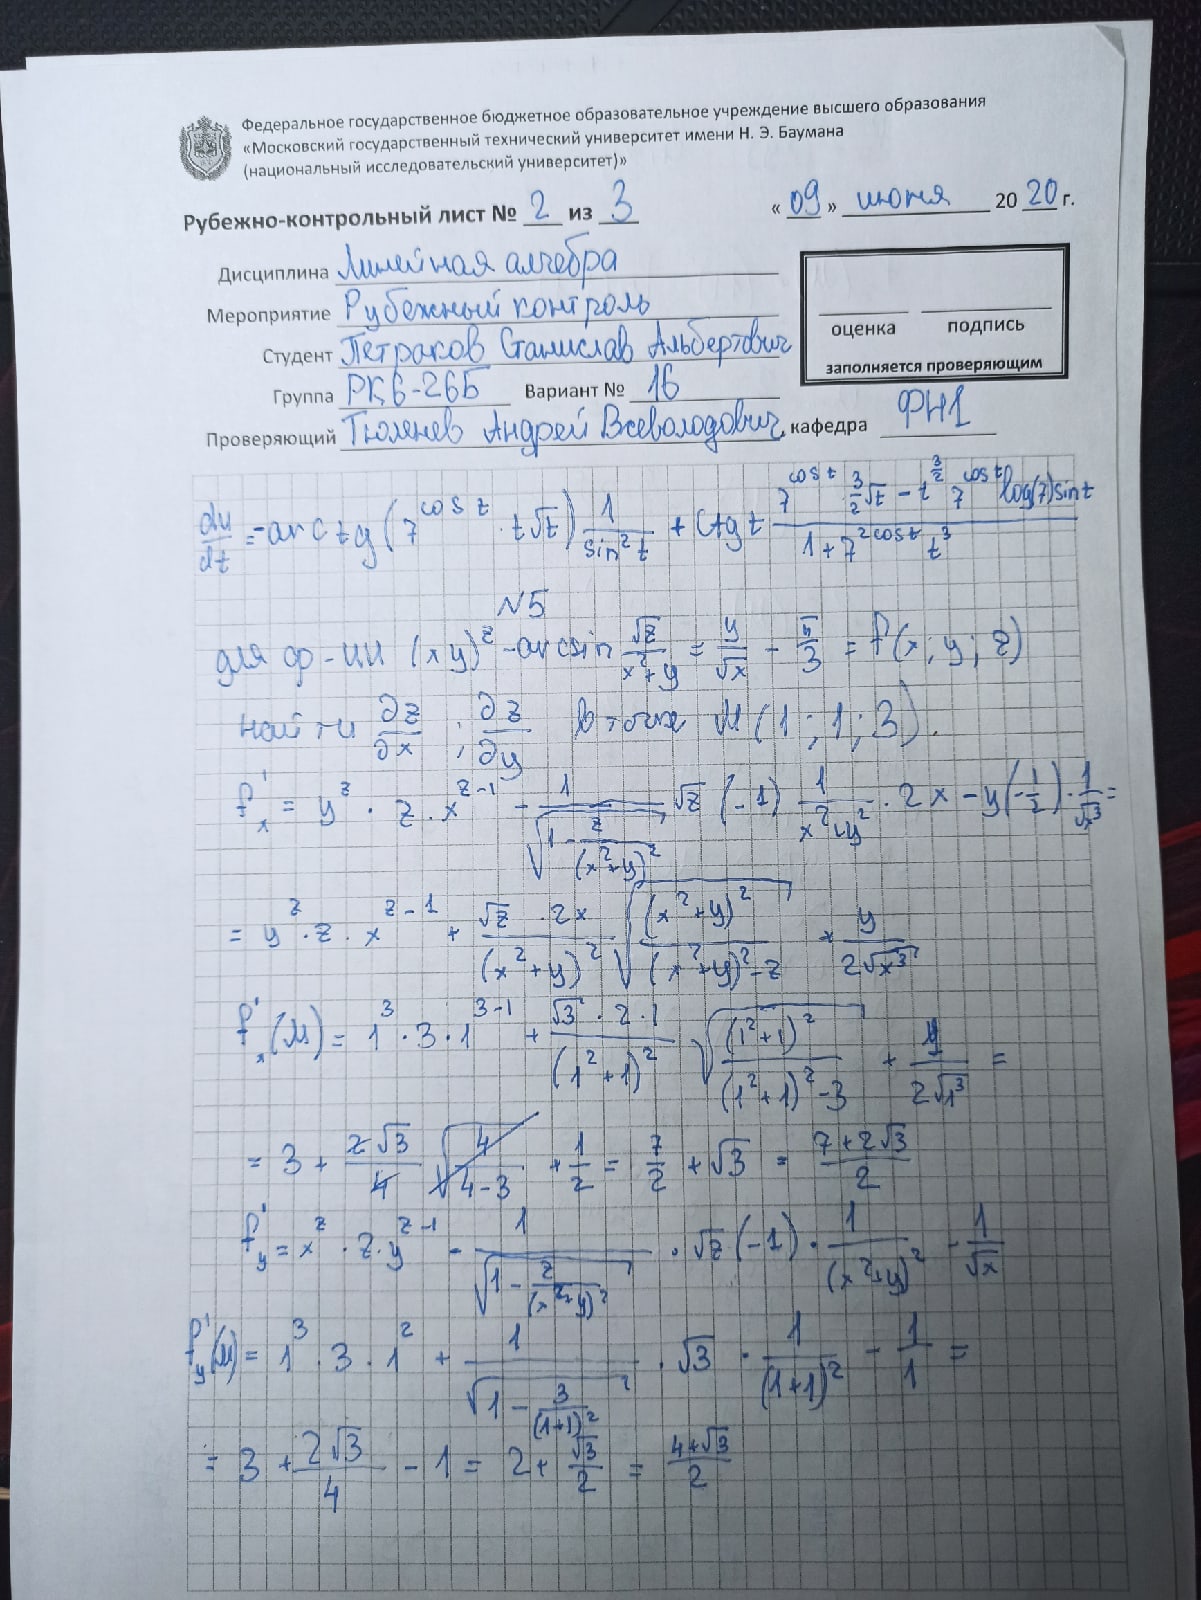 Федеральное государственное бюджетное образовательное учреждение высшего образования
«Московский государственный технический университет имени Н. Э. Баумана
(национальный исследовательский университет)»
Рубежно-контрольный лист № 2 из 3 «09» июня 2020 г.
Дисциплина Линейная алгебра
Мероприятие Рубежный контроль
Студент Петраков Станислав Альбертович
Группа РК6-26Б Вариант № 16
Проверяющий Тюленев Андрей Всеволодович, кафедра ФН1
оценка подпись
заполняется проверяющим
du/dt = -arctg(7^cos t · t√t) 1/sin² t + ctg t (7^cos t · 3/2 √t - t^(3/2) 7^cos t log(7) sin t)/(1+7^(2cos t) t³)
№5
для ф-ции (xy)^z - arcsin √z/(x²+y) = y/√x - π/3 = f(x; y; z)
найти ∂z/∂x ; ∂z/∂y в точке M(1; 1; 3).
f'x = y^z · z · x^(z-1) - 1/√(1 - z/(x²+y)²) √z (-1) 1/(x²+y)² · 2x - y(-1/2) · 1/√x³ =
= y^z · z · x^(z-1) + (√z · 2x)/(x²+y)² √((x²+y)²/((x²+y)²-z)) + y/(2√x³)
f'x(M) = 1³ · 3 · 1^(3-1) + (√3 · 2 · 1)/(1²+1)² √((1²+1)²/((1²+1)²-3)) + 1/(2√1³) =
= 3 + 2√3/4 √(4/(4-3)) + 1/2 = 7/2 + √3 = (7+2√3)/2
f'y = x^z · z · y^(z-1) - 1/√(1 - z/(x²+y)²) · √z (-1) · 1/(x²+y)² - 1/√x
f'y(M) = 1³ · 3 · 1² + 1/√(1 - 3/(1+1)²) · √3 · 1/(1+1)² - 1/1 =
= 3 + 2√3/4 - 1 = 2 + √3/2 = (4+√3)/2